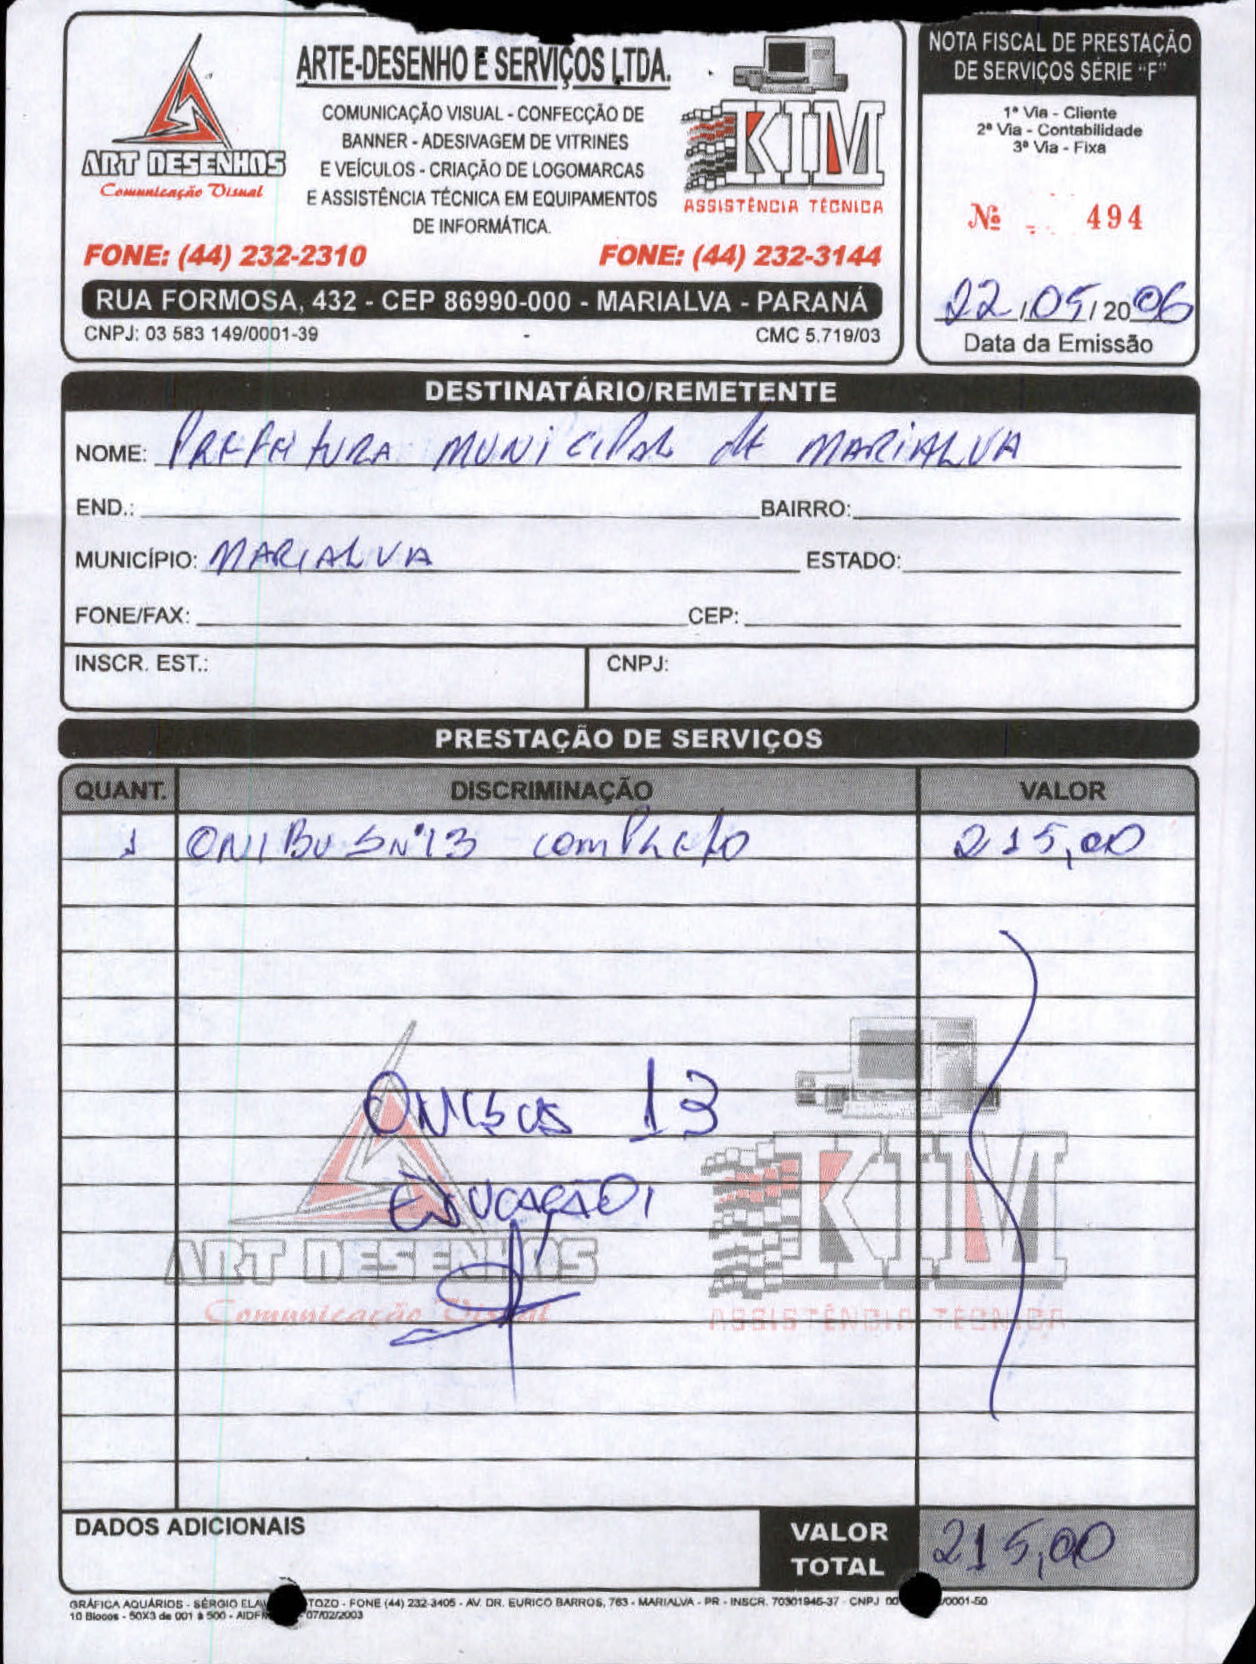 ARTE-DESENHO E SERVIÇOS LTDA.
ART DESENHOS
Comunicação Visual
COMUNICAÇÃO VISUAL - CONFECÇÃO DE
BANNER - ADESIVAGEM DE VITRINES
E VEÍCULOS - CRIAÇÃO DE LOGOMARCAS
E ASSISTÊNCIA TÉCNICA EM EQUIPAMENTOS
DE INFORMÁTICA.
KIM
ASSISTÊNCIA TÉCNICA
FONE: (44) 232-2310 FONE: (44) 232-3144
RUA FORMOSA, 432 - CEP 86990-000 - MARIALVA - PARANÁ
CNPJ: 03 583 149/0001-39 CMC 5.719/03
NOTA FISCAL DE PRESTAÇÃO
DE SERVIÇOS SÉRIE "F"
1ª Via - Cliente
2ª Via - Contabilidade
3ª Via - Fixa
Nº 494
22/05/2006
Data da Emissão
DESTINATÁRIO/REMETENTE
NOME: PREFEITURA MUNICIPAL de MARIALVA
END.: BAIRRO:
MUNICÍPIO: MARIALVA ESTADO:
FONE/FAX: CEP:
INSCR. EST.: CNPJ:
PRESTAÇÃO DE SERVIÇOS
QUANT. DISCRIMINAÇÃO VALOR
1 ONIBUS Nº13 completo 215,00
ONIBUS 13
EDUCAÇÃO
ART DESENHOS
Comunicação Visual
KIM
ASSISTÊNCIA TÉCNICA
DADOS ADICIONAIS
VALOR TOTAL 215,00
GRÁFICA AQUÁRIOS - SÉRGIO TOZO - FONE (44) 232-3405 - AV. DR. EURICO BARROS, 763 - MARIALVA - PR - INSCR. 70301946-37 - CNPJ 00 /0001-50
10 Blocos - 50X3 de 001 à 500 - 07/02/2003